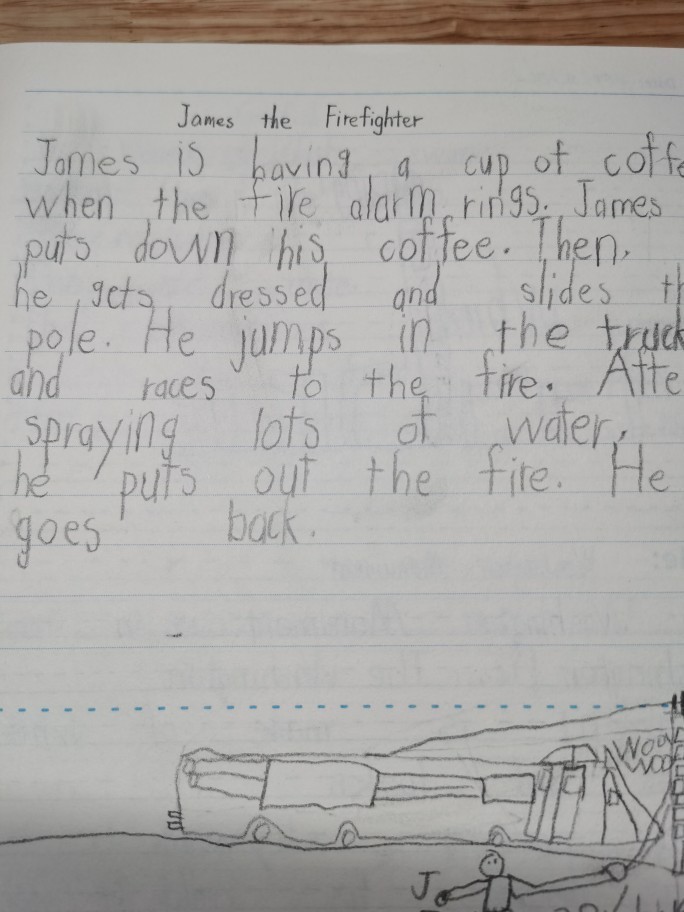 James the Firefighter
James is having a cup of coffe
when the fire alarm rings. James
puts down his coffee. Then,
he gets dressed and slides th
pole. He jumps in the truck
and races to the fire. Afte
spraying lots of water,
he puts out the fire. He
goes back.
Woo
Woo
J